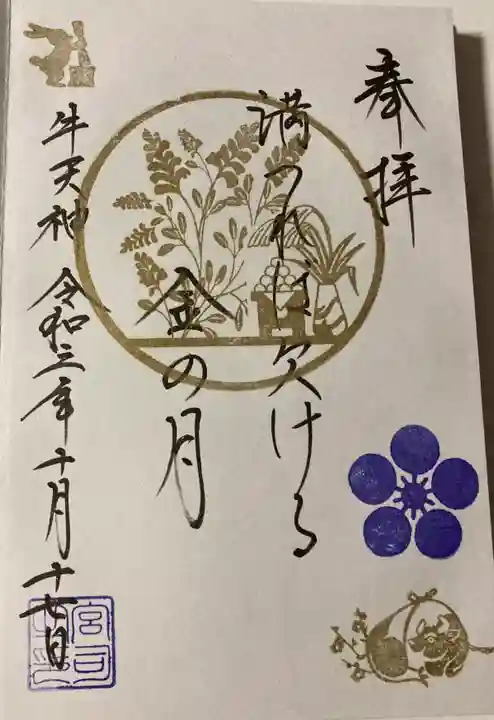 奉拝
満つれば欠ける
金の月
牛天神 令和三年十月十七日
宮司